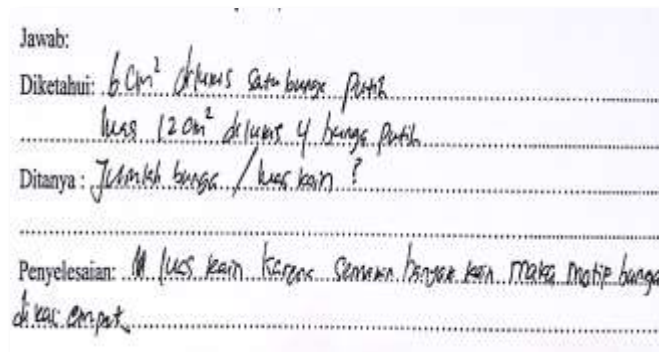 Jawab:
Diketahui: 6 cm² dilukis satu bunga putih
luas 12 cm² dilukis 4 bunga putih
Ditanya: Jumlah bunga / luas kain ?
Penyelesaian: luas kain karena semakin banyak kain maka motip bunga
di kali empat